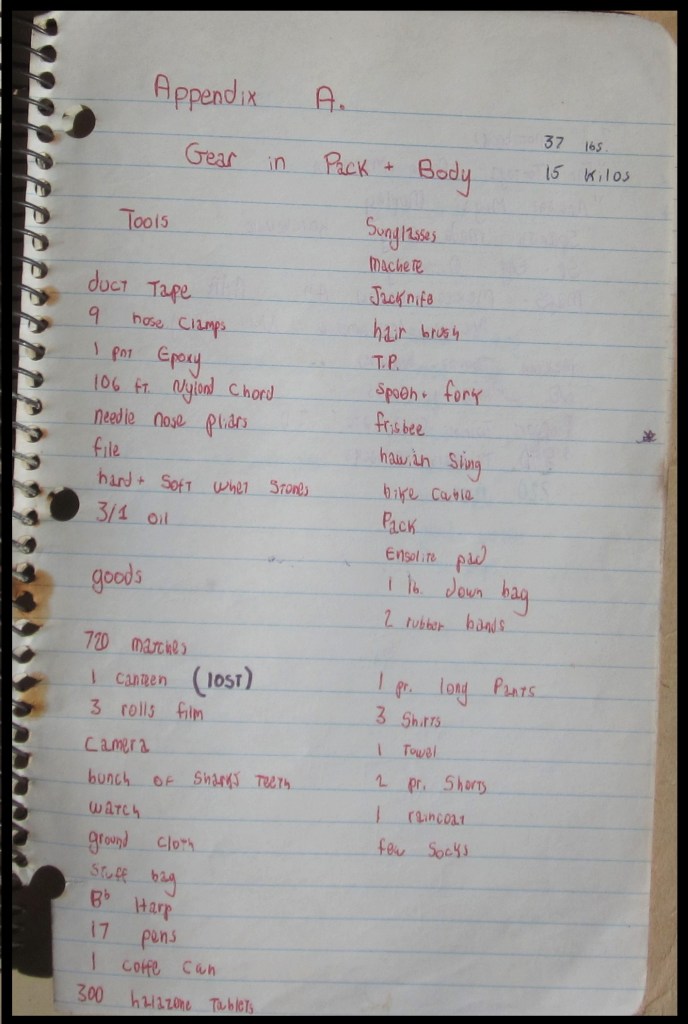 Appendix A.
Gear in Pack + Body
37 lbs.
15 Kilos
Tools
duct Tape
9 hose Clamps
1 pnt Epoxy
106 ft. Nylond Chord
needle nose pliars
file
hard + Soft whet Stones
3/1 oil
goods
720 matches
1 canteen (lOST)
3 rolls film
Camera
bunch of Sharks Teeth
watch
ground Cloth
Stuff bag
Bb Harp
17 pens
1 coffe can
300 halazone Tablets
Sunglasses
machete
Jacknife
hair brush
T.P.
Spoon + fork
frisbee
hawiin Sling
bike Cable
Pack
Ensolite pad
1 lb. down bag
2 rubber bands
1 pr. long Pants
3 Shirts
1 Towel
2 pr. Shorts
1 raincoat
few Socks